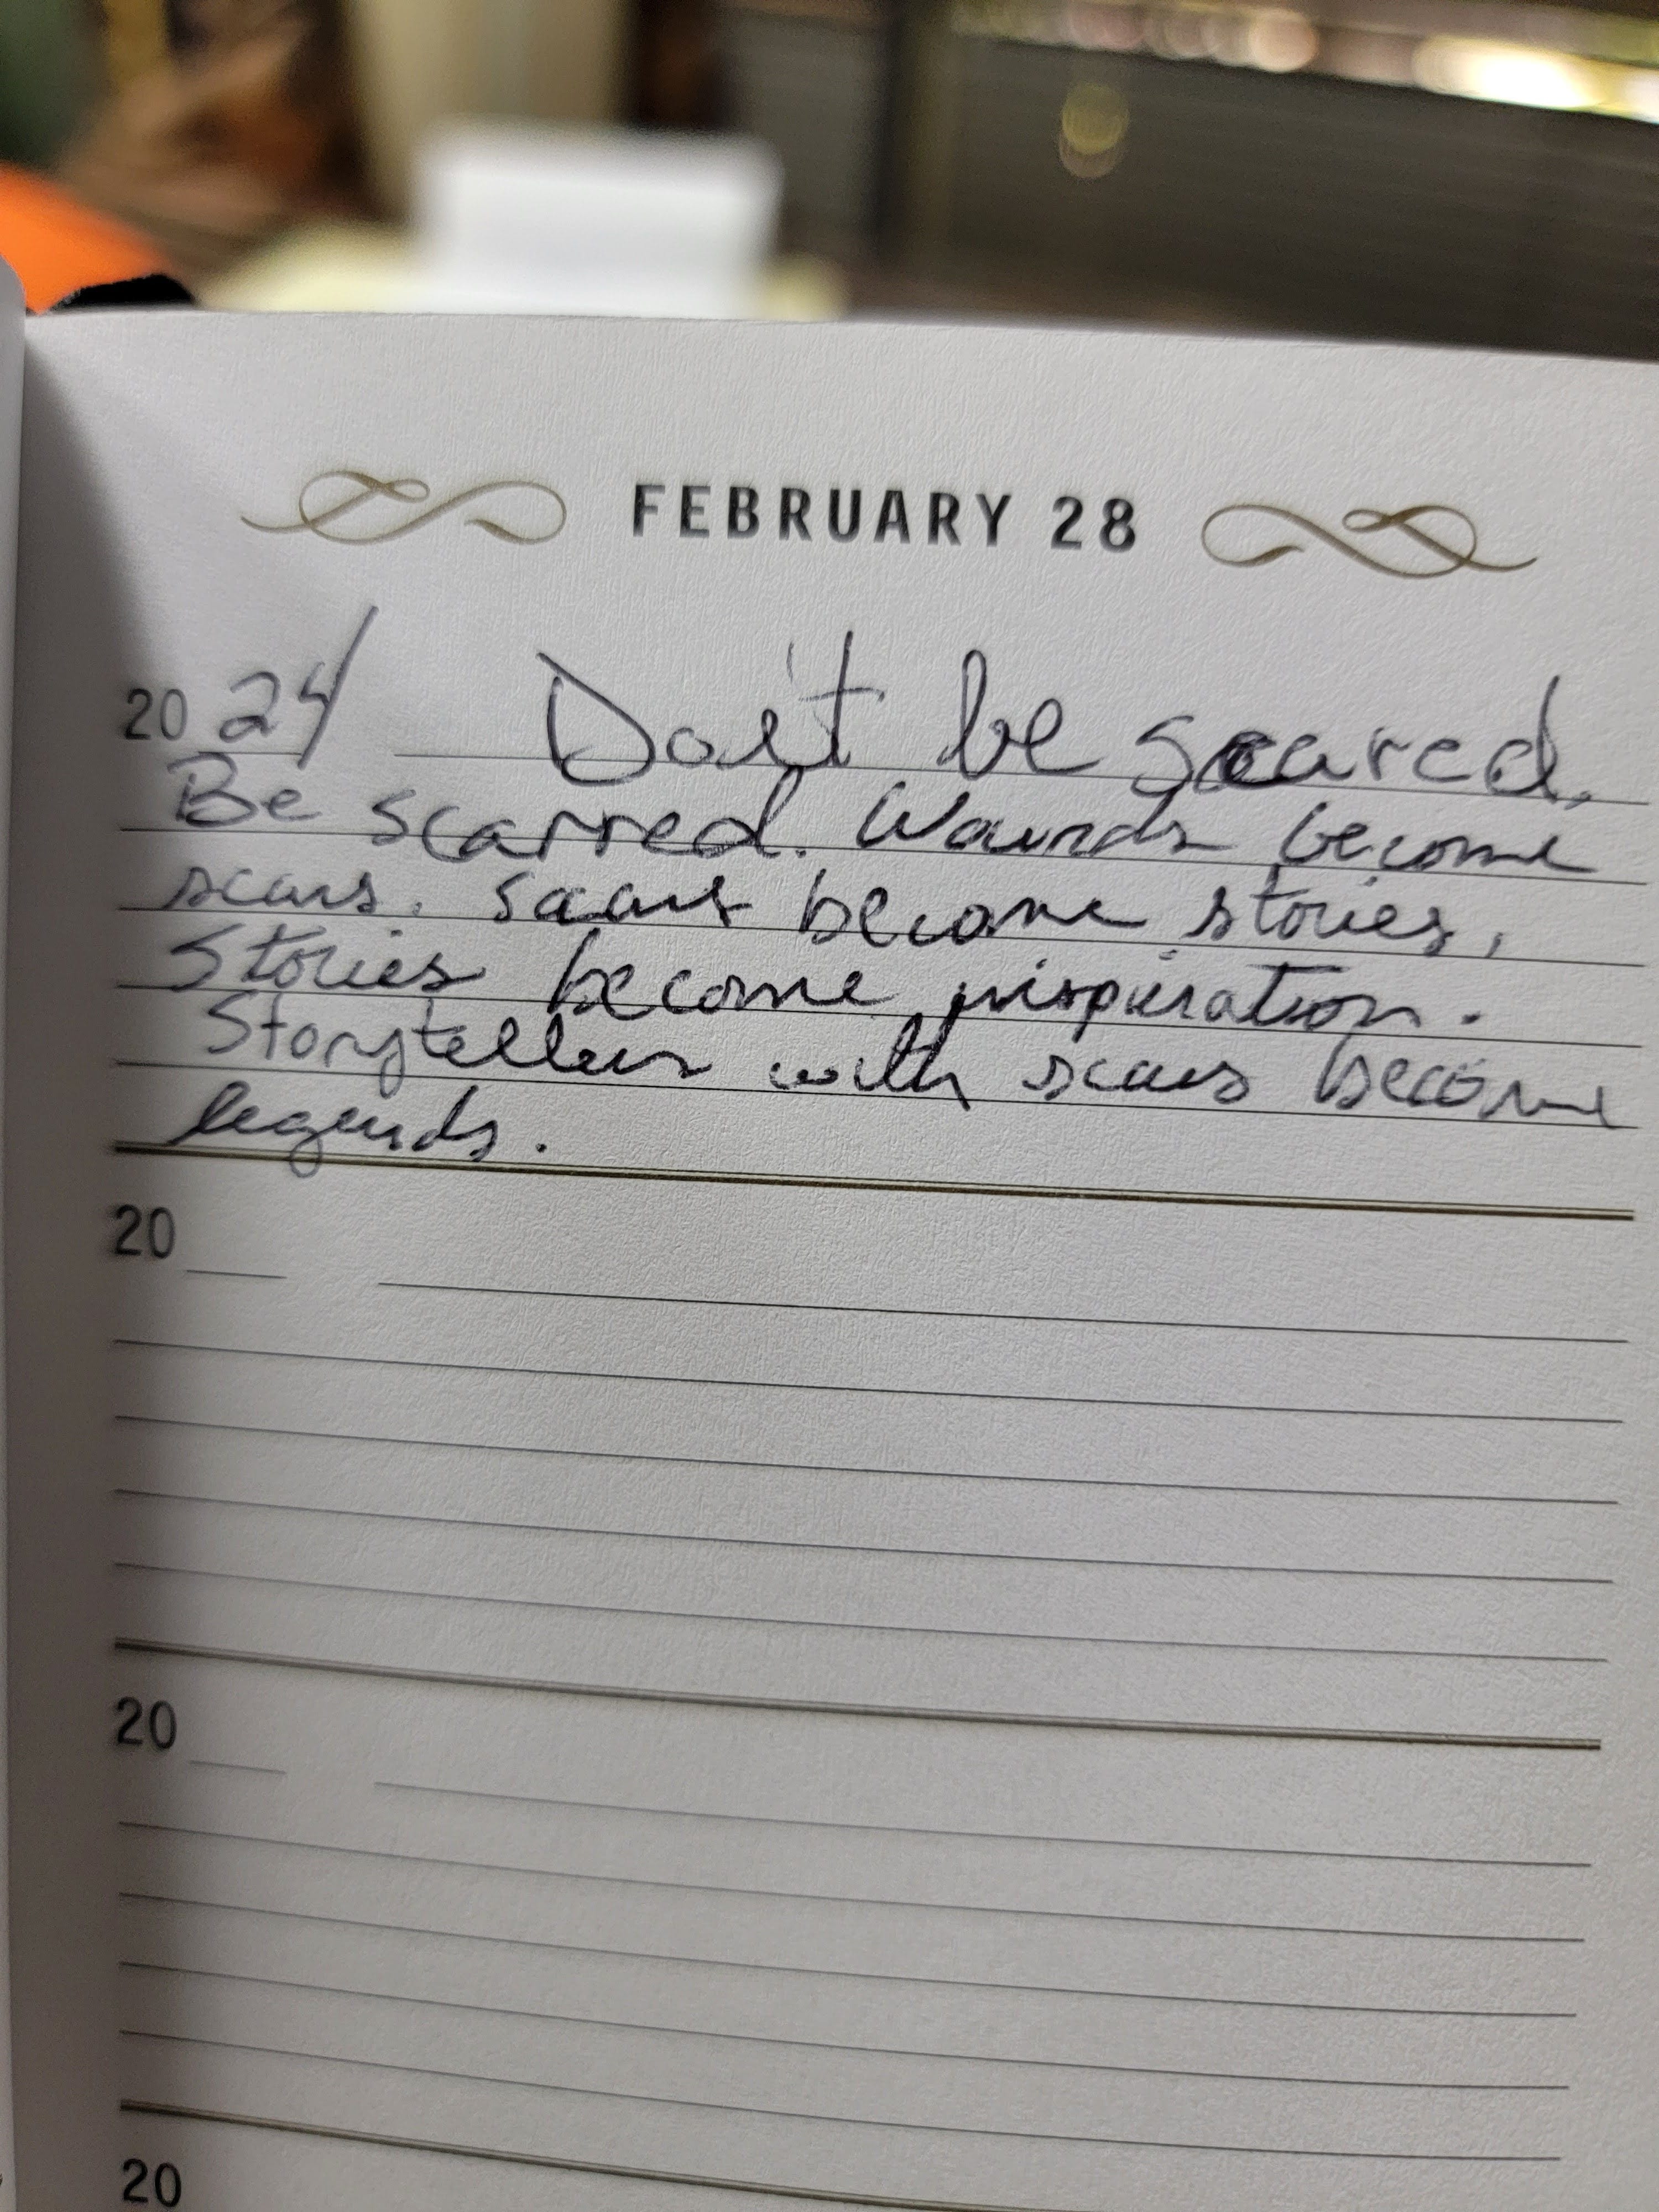 FEBRUARY 28
2024 Don't be scared.
Be scarred. Wounds become
scars. Scars become stories.
Stories become inspiration.
Storytellers with scars become
legends.
20
20
20